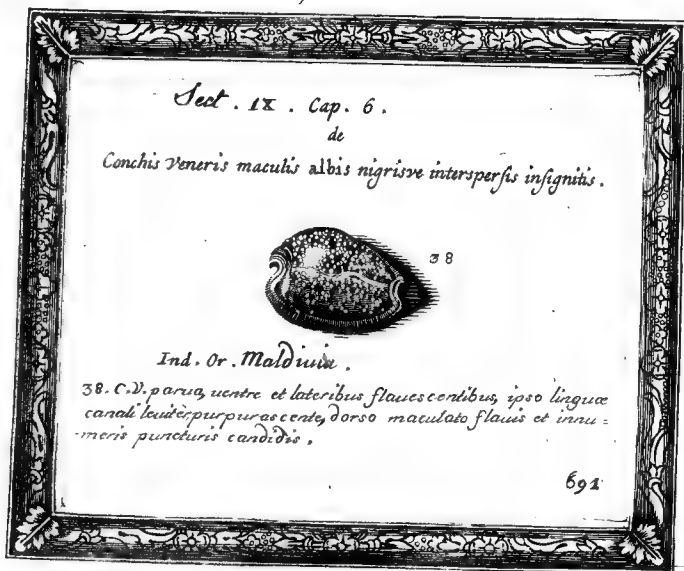 Sect. IX. Cap. 6.
de
Conchis Veneris maculis albis nigrisve interspersis insignitis.
38
Ind. Or. Maldivia.
38. C.V. parva, ventre et lateribus flavescentibus, ipso linguæ
canali leuiter purpurascente, dorso maculato flauis et innu=
meris puncturis candidis.
691